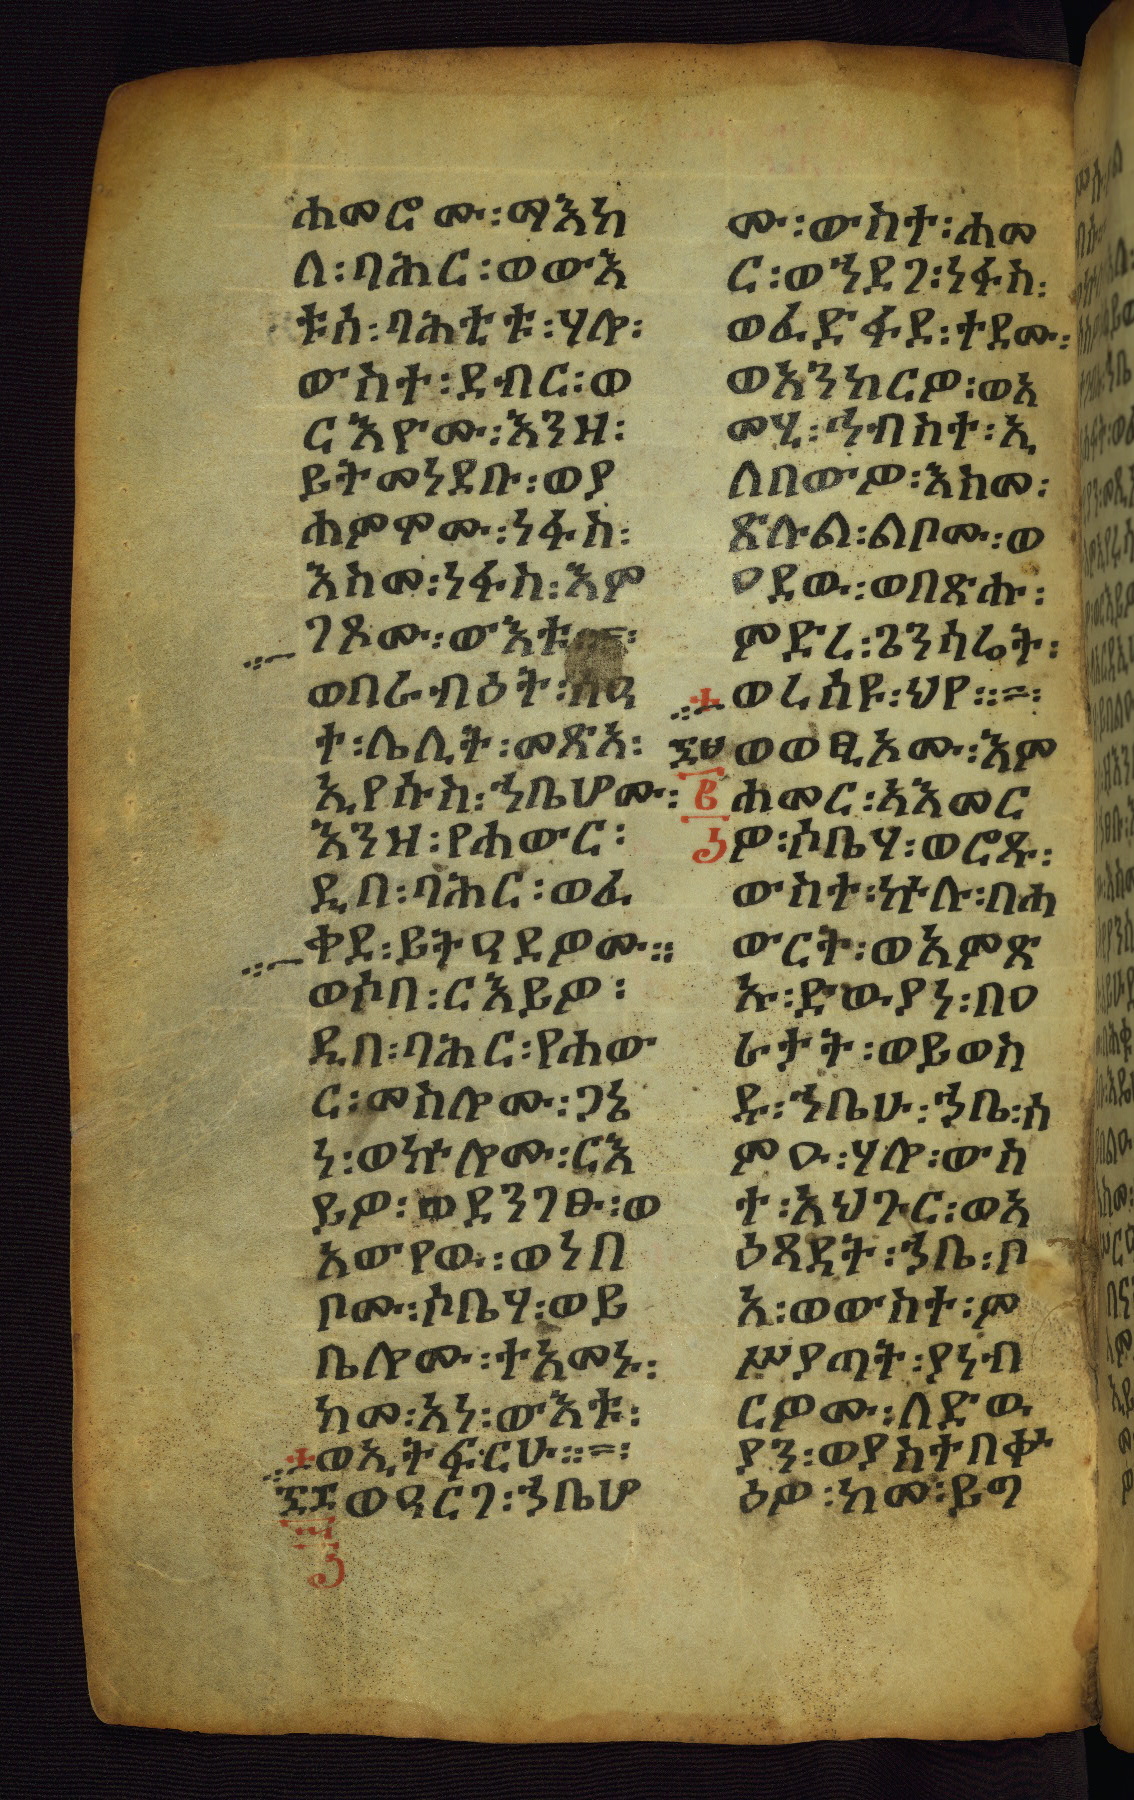 ሐመሮሙ፡ማእከ
ለ፡ባሕር፡ወውእ
ቱሰ፡ባሕቲቱ፡ሃሎ፡
ውስተ፡ደብር፡ወ
ርእዮሙ፡እንዘ፡
ይትመነደቡ፡ወያ
ሐምሞሙ፡ነፋስ፡
እስመ፡ነፋስ፡እም
ገጾሙ፡ውእቱ።=፡
ወበራብዕት፡ሰዓ
ተ፡ሌሊት፡መጽአ፡
ኢየሱስ፡ኀቤሆሙ፡
እንዘ፡የሐውር፡
ዲበ፡ባሕር፡ወፈ
ቀደ፡ይትዓደዎሙ።
ወሶበ፡ርእይዎ፡
ዲበ፡ባሕር፡የሐው
ር፡መስሎሙ፡ጋኔ
ነ፡ወኵሎሙ፡ርእ
ይዎ፡ወደንገፁ፡ወ
አውየዉ፡ወነበ
ቦሙ፡ሶቤሃ፡ወይ
ቤሎሙ፡ተአመኑ፡
ከመ፡አነ፡ውእቱ፡
ወኢትፍርሁ።=፡
፷፰ ወዓርገ፡ኀቤሆ
ሙ፡ውስተ፡ሐመ
ር፡ወኀደገ፡ነፋስ፡
ወፈድፋደ፡ተደሙ፡
ወአንከርዎ፡ወአ
መሂ፡ኀብስተ፡ኢ
ለበውዎ፡እስመ፡
ጽሉል፡ልቦሙ፡ወ
ዐደዉ፡ወበጽሑ፡
ምድረ፡ጌንሳሬት፡
ወረሰዩ፡ህየ።=፡
፷፱ ወወፂኦሙ፡እም
ሐመር፡አእመር
ዎ፡ሶቤሃ፡ወሮጹ፡
ውስተ፡ኵሉ፡በሐ
ውርት፡ወአምጽ
ኡ፡ድዉያነ፡በዐ
ራታት፡ወይወስ
ዱ፡ኀቤሁ፡ኀቤ፡ሰ
ምዑ፡ሃሎ፡ውስ
ተ፡አህጉር፡ወአ
ዕጻዳት፡ኀቤ፡ቦ
አ፡ወውስተ፡ም
ሥያጣት፡ያነብ
ርዎሙ፡ለድዉ
ያን፡ወያስተበቍ
ዕዎ፡ከመ፡ይግ